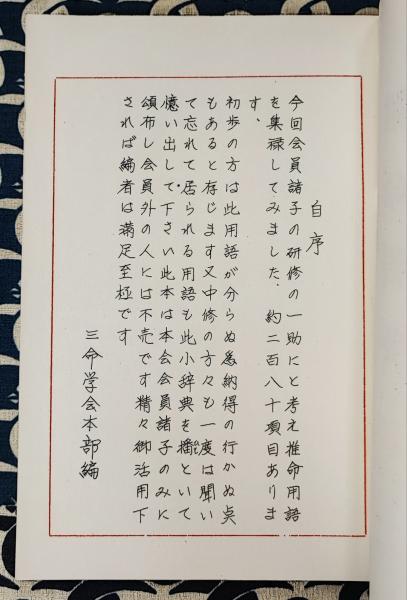 自序
今回会員諸子の研修の一助にと考え推命用語
を集録してみました、約二百八十項目ありま
す、
初歩の方は此用語が分らぬ為納得の行かぬ点
もあると存じます又中修の方々も一度は聞い
て忘れて居られる用語も此小辞典を播といて
憶い出して下さい此本は本会会員諸子のみに
頒布し会員外の人には不売です精々御活用下
されば編者は満足至極です
三命学会本部編